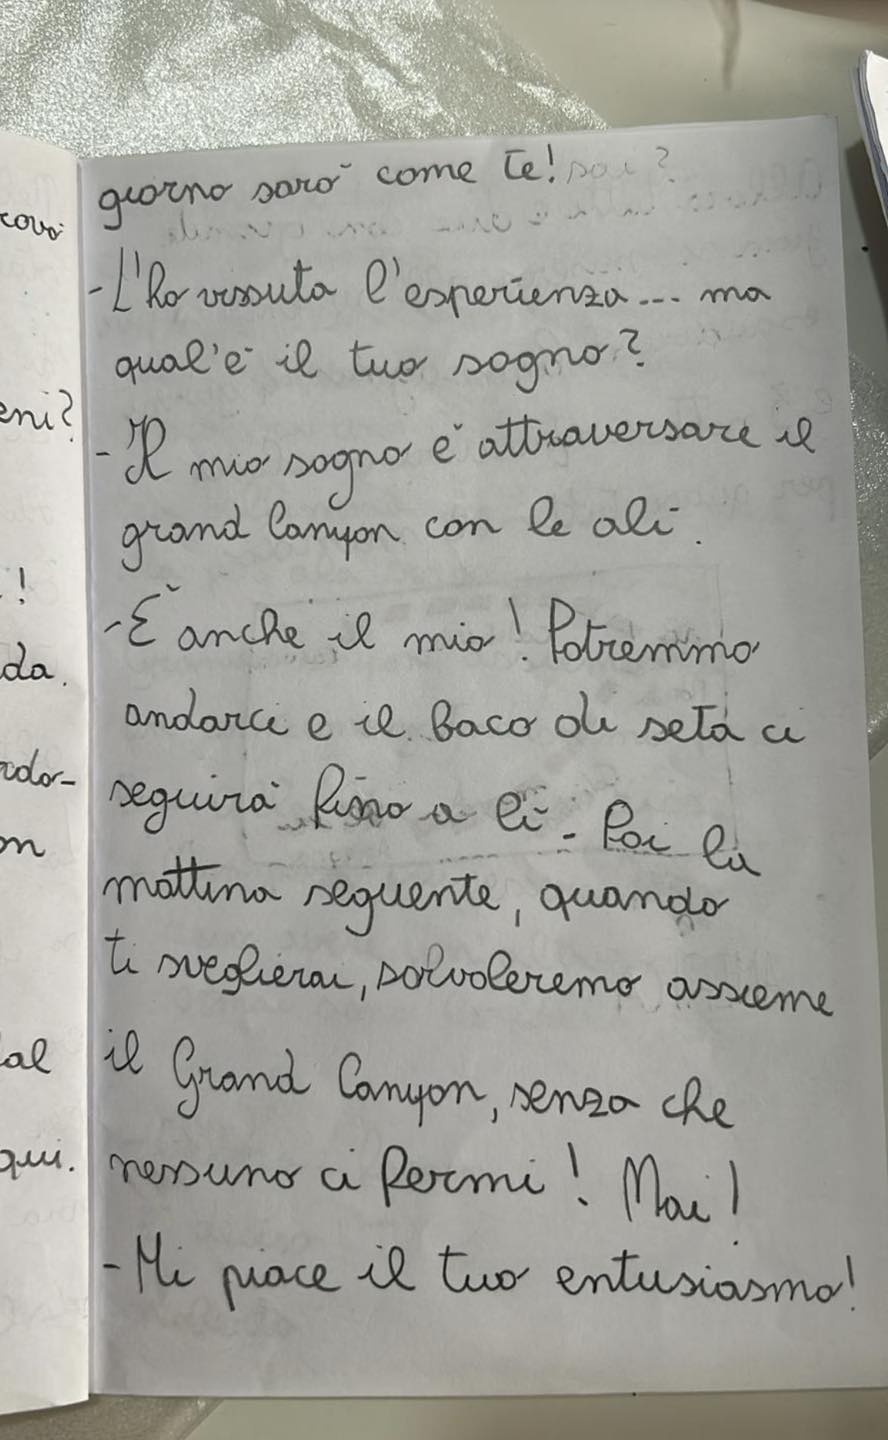 giorno sarò come te! sai?
-L'ho vissuta l'esperienza... ma
qual'è il tuo sogno?
-Il mio sogno è attraversare il
grand Canyon con le ali.
-È anche il mio! Potremmo
andarci e il baco di seta ci
seguirà fino a lì. Poi la
mattina seguente, quando
ti sveglierai, solvoleremo assieme
il Grand Canyon, senza che
nessuno ci fermi! Mai!
-Mi piace il tuo entusiasmo!
covò
eni?
!
da.
ador-
on
al
qui.